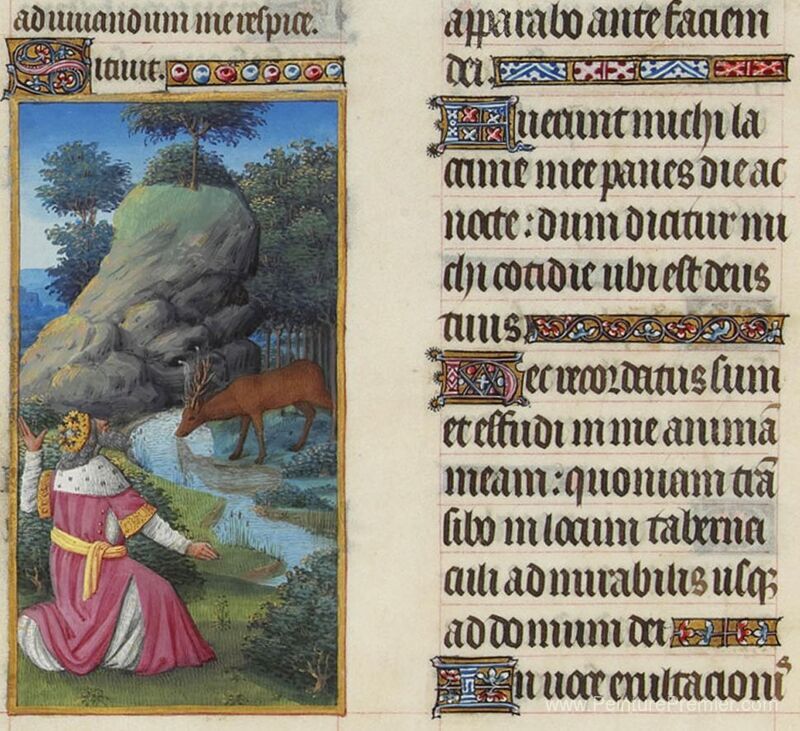 adiuuandum me respice.
Sitiuit.
apparabo ante faciem
dei.
Fuerunt michi la
crime mee panes die ac
nocte: dum dicitur mi
chi cotidie ubi est deus
tuus.
Hec recordatus sum
et effudi in me animā
meam: quoniam trā
sibo in locum taberna
culi admirabilis usqꝫ
ad domum dei
In uoce exultacionis
www.PeinturePremier.com